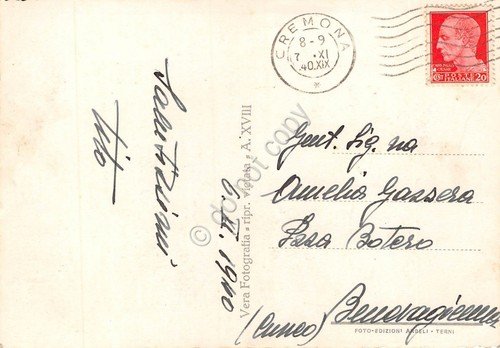 CREMONA
8 - 9
7 . XI
40.XIX
*
POSTE ITALIANE
20
Saluti
Tito
6. XI. 1940
Vera Fotografia - ripr. vietata - A. XVIII
Gent. Sig. na
Amelia Gassera
Casa Botero
(Cuneo)
FOTO-EDIZIONI ANGELI - TERNI
© do not copy